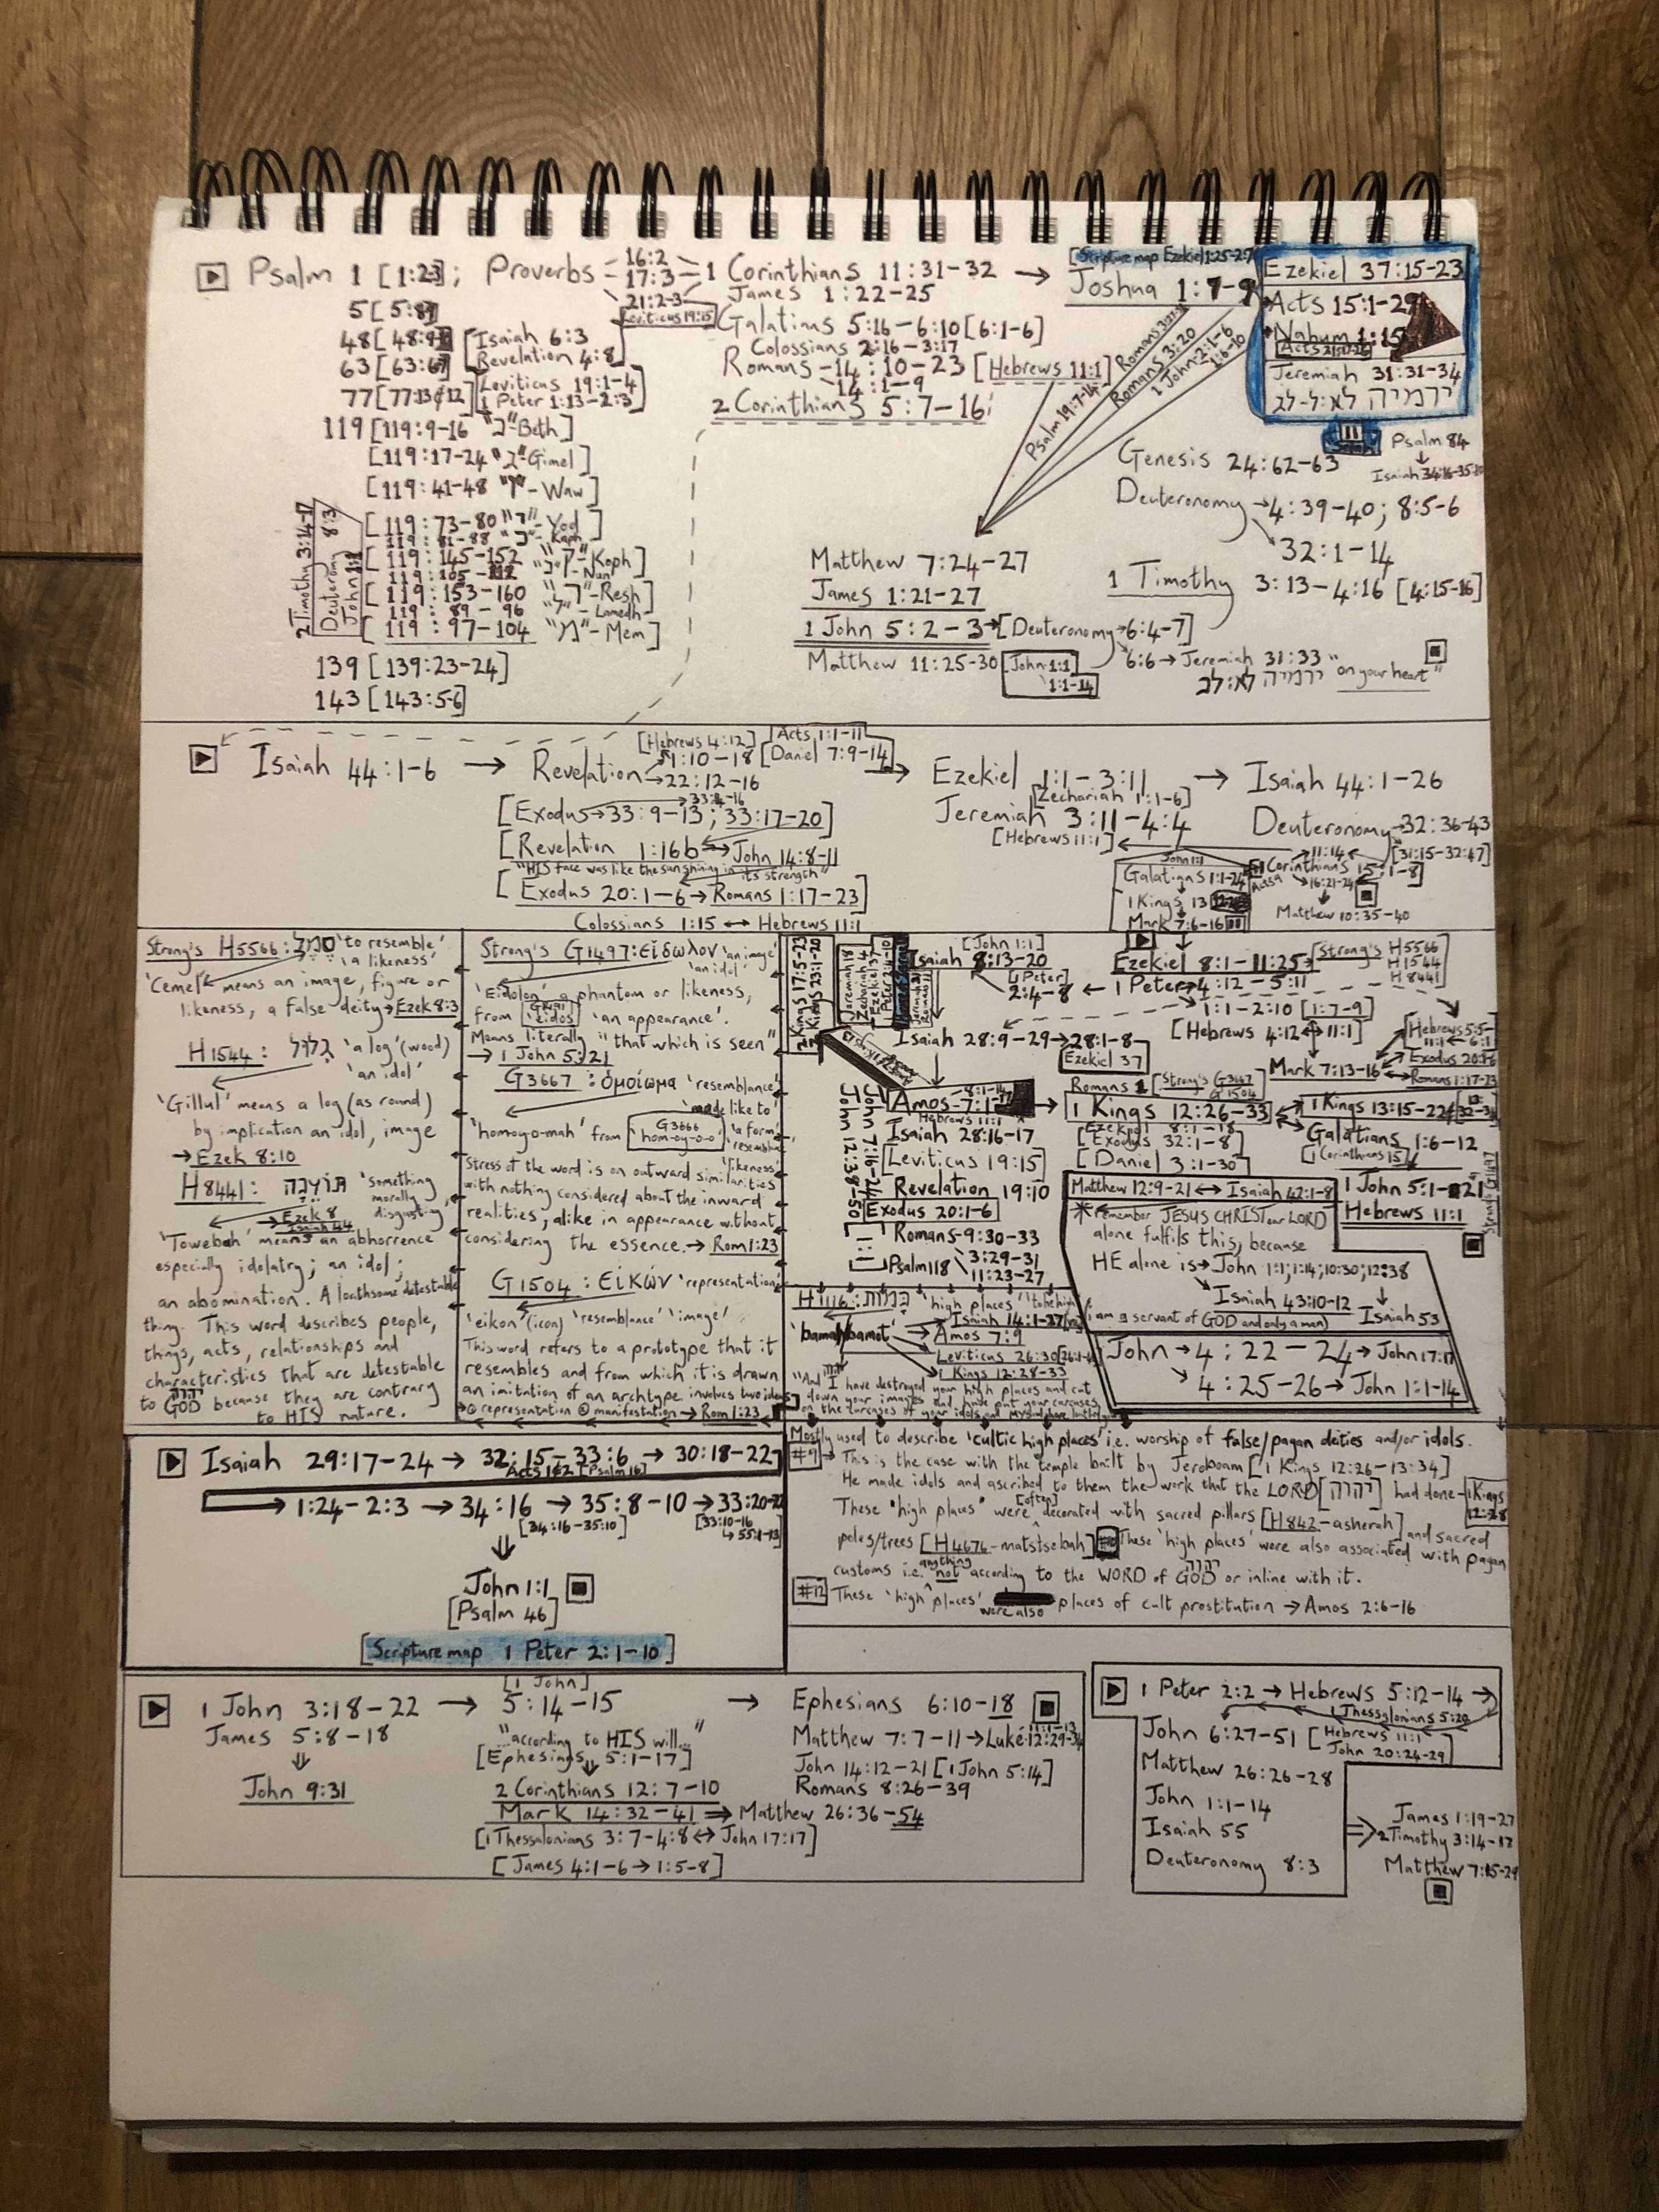 Psalm 1 [1:2-3]; Proverbs 16:2
17:3
21:2-3
Leviticus 19:15
5[5:8]
48[48:9]
63[63:6-7]
77[77:13&12]
[Isaiah 6:3
Revelation 4:8]
[Leviticus 19:1-4
1 Peter 1:13-2:3]
119[119:9-16 "ב"-Beth]
[119:17-24 "ג"-Gimel]
[119:41-48 "ו"-Waw]
[119:73-80 "י"-Yod]
119:81-88 "כ"-Kaph
[119:145-152 "ק"-Koph]
119:105-112 "נ"-Nun
[119:153-160 "ר"-Resh]
119:89-96 "ל"-Lamedh
[119:97-104 "מ"-Mem]
2 Timothy 3:14-17
Deuteronomy 8:3
139[139:23-24]
143[143:5-6]
1 Corinthians 11:31-32 →
James 1:22-25
Galatians 5:16-6:10[6:1-6]
Colossians 2:16-3:17
Romans 14:10-23 [Hebrews 11:1]
14:1-9
2 Corinthians 5:7-16
[Scripture map Ezekiel 1:25-2:7]
Joshua 1:7-9
Psalm 19:7-14
Romans 3:20
1 John 2:1-6
1:6-10
Ezekiel 37:15-23
Acts 15:1-29
Nahum 1:15
Jeremiah 31:31-34
ירמיה לא:ל-לב
Psalm 84
↓
Isaiah 34:16-35:10
Genesis 24:62-63
Deuteronomy → 4:39-40; 8:5-6
32:1-14
1 Timothy 3:13-4:16 [4:15-16]
Matthew 7:24-27
James 1:21-27
1 John 5:2-3→[Deuteronomy→6:4-7]
6:6→Jeremiah 31:33 "on your heart"
ירמיה לא:לב
Matthew 11:25-30 [John 1:1
1:1-14]
Isaiah 44:1-6 → Revelation → 1:10-18
→ 22:12-16
[Hebrews 4:12] [Acts 1:1-11
[Daniel 7:9-14]
[Exodus→33:9-13; 33:17-20]
[Revelation 1:16b ↔ John 14:8-11
"HIS face was like the sun shining in its strength"
[Exodus 20:1-6→Romans 1:17-23]
Colossians 1:15 ↔ Hebrews 11:1
Ezekiel 1:1-3:11 → Isaiah 44:1-26
[Zechariah 1:1-6]
Jeremiah 3:11-4:4
[Hebrews 11:1]
Deuteronomy→32:36-43
11:14 [31:15-32:47]
John 1:1
Galatians 1:1-24
1 Kings 13
Mark 7:6-16
1 Corinthians 15:1-8]
16:21-24
Matthew 10:35-40
Strong's H5566: סמל 'to resemble'
'a likeness'
'Cemel' means an image, figure or
likeness, a false deity→Ezek 8:3
H1544: גלול 'a log' (wood)
'an idol'
'Gillul' means a log (as round)
by implication an idol, image
→Ezek 8:10
H8441: תועבה 'something
morally
disgusting'
→Ezek 8
Isaiah 44
'Towebah' means an abhorrence
especially idolatry; an idol;
an abomination. A loathsome detestable
thing. This word describes people,
things, acts, relationships and
characteristics that are detestable
to GOD יהוה because they are contrary
to HIS nature.
Strong's G1497: εἴδωλον 'an image'
'an idol'
'Eidolon' a phantom or likeness,
from G1491 'eidos' 'an appearance'.
Means literally "that which is seen"
→1 John 5:21
G3667: ὁμοίωμα 'resemblance'
'made like to'
'homoyo-mah' from G3666 'hom-oy-o-o' 'a form'
Stress of the word is on outward similarities
with nothing considered about the inward
realities, alike in appearance without
considering the essence.→ Rom 1:23
G1504: Εἰκών 'representation'
'eikon' (icon) 'resemblance' 'image'
This word refers to a prototype that it
resembles and from which it is drawn
an imitation of an archtype involves two ideas
→① representation ② manifestation → Rom 1:23
2 Kings 17:5-23
2 Kings 23:1-20
[John 1:1]
Isaiah 8:13-20
[1 Peter]
2:4-8 ← 1 Peter→4:12-5:11
1:1-2:10 [1:7-9]
Ezekiel 8:1-11:25→[Strong's H5566
H1544
H8441]
Isaiah 28:9-29→28:1-8
Ezekiel 37
[Hebrews 4:12↔11:1]
Mark 7:13-16
Exodus 20:1-6
Romans 1:17-23
Amos 7:1-
8:1-14
Hebrews 11:1
Isaiah 28:16-17
[Leviticus 19:15]
Revelation 19:10
Exodus 20:1-6
Romans-9:30-33
3:29-31
11:23-27
Psalm 118
John 7:16-24
John 12:38-50
Romans 1 [Strong's G3667
G1504]
1 Kings 12:26-33
Ezekiel 8:1-18
[Exodus 32:1-8]
[Daniel 3:1-30]
1 Kings 13:15-22
Galatians 1:6-12
[1 Corinthians 15]
1 John 5:1-21
Hebrews 11:1
Strong's G1497
Matthew 12:9-21↔Isaiah 42:1-8
*remember JESUS CHRIST our LORD
alone fulfils this, because
HE alone is→John 1:1;1:14;10:30;12:38
Isaiah 43:10-12
Isaiah 53
i am a servant of GOD and only a man)
John→4:22-24→John 17:17
4:25-26→John 1:1-14
H1116: במות 'high places'
'bamah/bamot'
Isaiah 14:1-27
Amos 7:9
Leviticus 26:30
1 Kings 12:28-33
"And I have destroyed your high places and cut
down your images and have put your carcases
on the carcases of your idols and
Mostly used to describe 'cultic high places' i.e. worship of false/pagan deities and/or idols.
#9→ This is the case with the temple built by Jeroboam [1 Kings 12:26-13:34]
He made idols and ascribed to them the work that the LORD [יהוה] had done-1 Kings
12:28
These "high places" were [often] decorated with sacred pillars [H842-asherah] and sacred
poles/trees [H4676-matstsebah] These 'high places' were also associated with pagan
customs i.e. anything not according to the WORD of GOD יהוה or inline with it.
#12 These 'high places' were also places of cult prostitution → Amos 2:6-16
Isaiah 29:17-24 → 32:15-33:6 → 30:18-22
Acts 1&2 [Psalm 16]
1:24-2:3 → 34:16 → 35:8-10 → 33:20-22
[34:16-35:10] [33:10-16
↳55:1-13]
John 1:1
[Psalm 46]
[Scripture map 1 Peter 2:1-10]
1 John 3:18-22 → [1 John] 5:14-15 → Ephesians 6:10-18
James 5:8-18
John 9:31
"...according to HIS will..."
[Ephesians 5:1-17]
2 Corinthians 12:7-10
Mark 14:32-41 ⇒ Matthew 26:36-54
[1 Thessalonians 3:7-4:8↔John 17:17]
[James 4:1-6→1:5-8]
Matthew 7:7-11→Luke 11:1-13
12:29-34
John 14:12-21 [1 John 5:14]
Romans 8:26-39
1 Peter 2:2→Hebrews 5:12-14
1 Thessalonians 5:20
John 6:27-51 [Hebrews 11:1
John 20:24-29]
Matthew 26:26-28
John 1:1-14
Isaiah 55
Deuteronomy 8:3
James 1:19-27
2 Timothy 3:14-17
Matthew 7:15-29